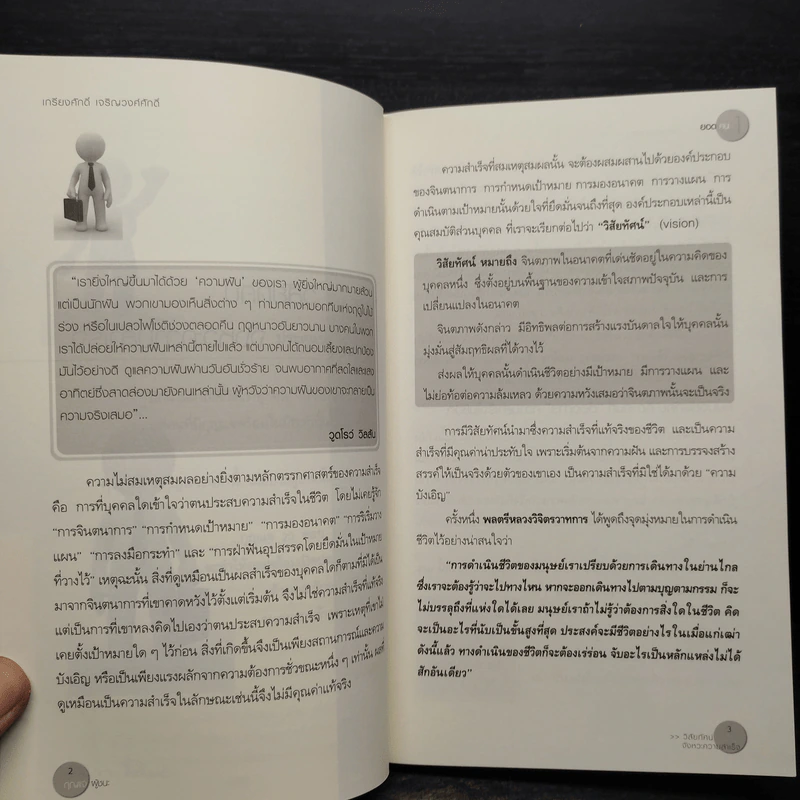 เกรียงศักดิ์ เจริญวงศ์ศักดิ์
“เรายิ่งใหญ่ขึ้นมาได้ด้วย ‘ความฝัน’ ของเรา ผู้ยิ่งใหญ่มากมายล้วน
แต่เป็นนักฝัน พวกเขามองเห็นสิ่งต่าง ๆ ท่ามกลางหมอกทึบแห่งฤดูใบไม้
ร่วง หรือในเปลวไฟโชติช่วงตลอดคืน ฤดูหนาวอันยาวนาน บางคนในพวก
เราได้ปล่อยให้ความฝันเหล่านี้ตายไปแล้ว แต่บางคนได้ถนอมเลี้ยงและปกป้อง
มันไว้อย่างดี ดูแลความฝันผ่านวันอันชั่วร้าย จนพบอากาศที่สดใสและแสง
อาทิตย์ซึ่งสาดส่องมายังคนเหล่านั้น ผู้หวังว่าความฝันของเขาจะกลายเป็น
ความจริงเสมอ”...
วูดโรว์ วิลสัน
ความไม่สมเหตุสมผลอย่างยิ่งตามหลักตรรกศาสตร์ของความสำเร็จ
คือ การที่บุคคลใดเข้าใจว่าตนประสบความสำเร็จในชีวิต โดยไม่เคยรู้จัก
“การจินตนาการ” “การกำหนดเป้าหมาย” “การมองอนาคต” “การริเริ่มวาง
แผน” “การลงมือกระทำ” และ “การฝ่าฟันอุปสรรคโดยยึดมั่นในเป้าหมาย
ที่วางไว้” เหตุฉะนั้น สิ่งที่ดูเหมือนเป็นผลสำเร็จของบุคคลใดก็ตามที่มิได้เป็น
มาจากจินตนาการที่เขาคาดหวังไว้ตั้งแต่เริ่มต้น จึงไม่ใช่ความสำเร็จที่แท้จริง
แต่เป็นการที่เขาหลงคิดไปเองว่าตนประสบความสำเร็จ เพราะเหตุที่เขาไม่
เคยตั้งเป้าหมายใด ๆ ไว้ก่อน สิ่งที่เกิดขึ้นจึงเป็นเพียงสถานการณ์และความ
บังเอิญ หรือเป็นเพียงแรงผลักจากความต้องการชั่วขณะหนึ่ง ๆ เท่านั้น ผลที่
ดูเหมือนเป็นความสำเร็จในลักษณะเช่นนี้จึงไม่มีคุณค่าแท้จริง
2
ผู้ชนะ
ยอด
ความสำเร็จที่สมเหตุสมผลนั้น จะต้องผสมผสานไปด้วยองค์ประกอบ
ของจินตนาการ การกำหนดเป้าหมาย การมองอนาคต การวางแผน การ
ดำเนินตามเป้าหมายนั้นด้วยใจที่ยึดมั่นจนถึงที่สุด องค์ประกอบเหล่านี้เป็น
คุณสมบัติส่วนบุคคล ที่เราจะเรียกต่อไปว่า “วิสัยทัศน์” (vision)
วิสัยทัศน์ หมายถึง จินตภาพในอนาคตที่เด่นชัดอยู่ในความคิดของ
บุคคลหนึ่ง ซึ่งตั้งอยู่บนพื้นฐานของความเข้าใจสภาพปัจจุบัน และการ
เปลี่ยนแปลงในอนาคต
จินตภาพดังกล่าว มีอิทธิพลต่อการสร้างแรงบันดาลใจให้บุคคลนั้น
มุ่งมั่นสู่สัมฤทธิผลที่ได้วางไว้
ส่งผลให้บุคคลนั้นดำเนินชีวิตอย่างมีเป้าหมาย มีการวางแผน และ
ไม่ย่อท้อต่อความล้มเหลว ด้วยความหวังเสมอว่าจินตภาพนั้นจะเป็นจริง
การมีวิสัยทัศน์นำมาซึ่งความสำเร็จที่แท้จริงของชีวิต และเป็นความ
สำเร็จที่มีคุณค่าน่าประทับใจ เพราะเริ่มต้นจากความฝัน และการบรรจงสร้าง
สรรค์ให้เป็นจริงด้วยตัวของเขาเอง เป็นความสำเร็จที่มิใช่ได้มาด้วย “ความ
บังเอิญ”
ครั้งหนึ่ง พลตรีหลวงวิจิตรวาทการ ได้พูดถึงจุดมุ่งหมายในการดำเนิน
ชีวิตไว้อย่างน่าสนใจว่า
“การดำเนินชีวิตของมนุษย์เราเปรียบด้วยการเดินทางในย่านไกล
ซึ่งเราจะต้องรู้ว่าจะไปทางไหน หากจะออกเดินทางไปตามบุญตามกรรม ก็จะ
ไม่บรรลุถึงที่แห่งใดได้เลย มนุษย์เราถ้าไม่รู้ว่าต้องการสิ่งใดในชีวิต คิด
จะเป็นอะไรที่นับเป็นขั้นสูงที่สุด ประสงค์จะมีชีวิตอย่างไรในเมื่อแก่เฒ่า
ดังนี้แล้ว ทางดำเนินของชีวิตก็จะต้องเร่ร่อน จับอะไรเป็นหลักแหล่งไม่ได้
สักอันเดียว”
3
>> วิสัยทัศน์
จังหวะความสำเร็จ